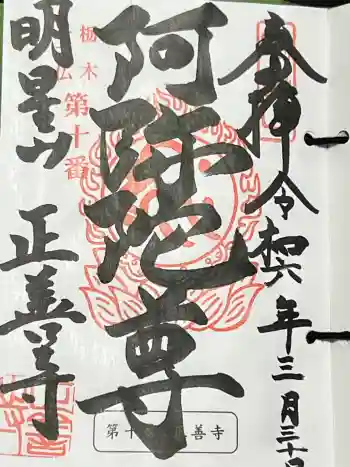 奉拝
令和六年三月三十日
阿弥陀尊
栃木
第十番
明星山
正善寺
善寺